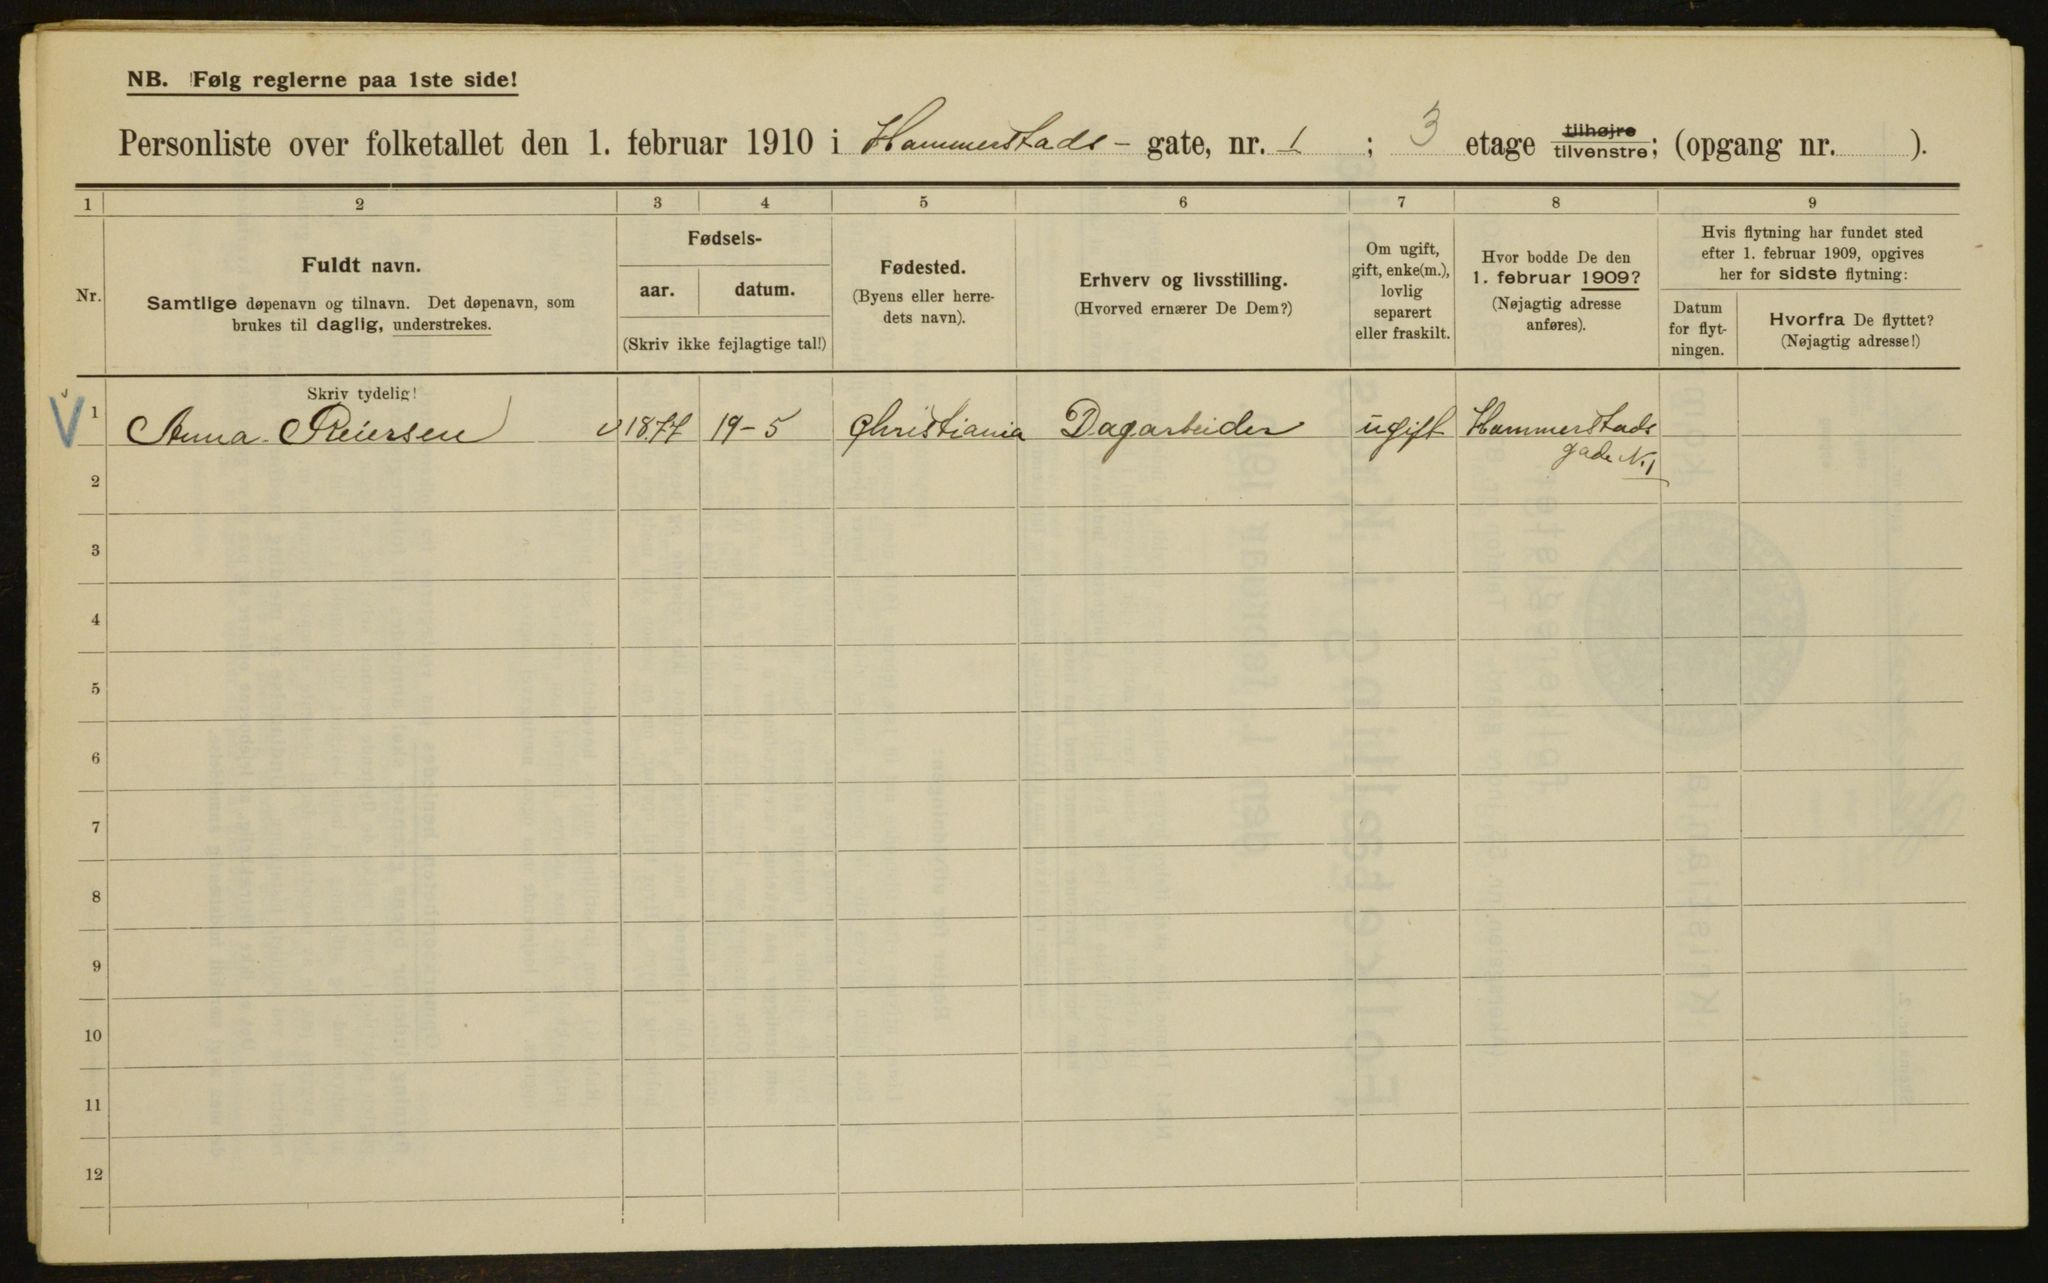 NB. Følg reglerne paa 1ste side!
Personliste over folketallet den 1. februar 1910 i Hammerstads - gate, nr. 1 ; 3 etage tilhøjre tilvenstre; (opgang nr. ).
1 2 3 4 5 6 7 8 9
Nr.
Fuldt navn.
Samtlige døpenavn og tilnavn. Det døpenavn, som
brukes til daglig, understrekes.
Fødsels-
aar. datum.
(Skriv ikke fejlagtige tal!)
Fødested.
(Byens eller herre-
dets navn).
Erhverv og livsstilling.
(Hvorved ernærer De Dem?)
Om ugift,
gift, enke(m.),
lovlig
separert
eller fraskilt.
Hvor bodde De den
1. februar 1909?
(Nøjagtig adresse
anføres).
Hvis flytning har fundet sted
efter 1. februar 1909, opgives
her for sidste flytning:
Datum
for flyt-
ningen.
Hvorfra De flyttet?
(Nøjagtig adresse!)
Skriv tydelig!
V 1 Anna Reiersen v 1877 19-5 Christiania Dagarbeider ugift Hammerstads
gade N.1
2
3
4
5
6
7
8
9
10
11
12